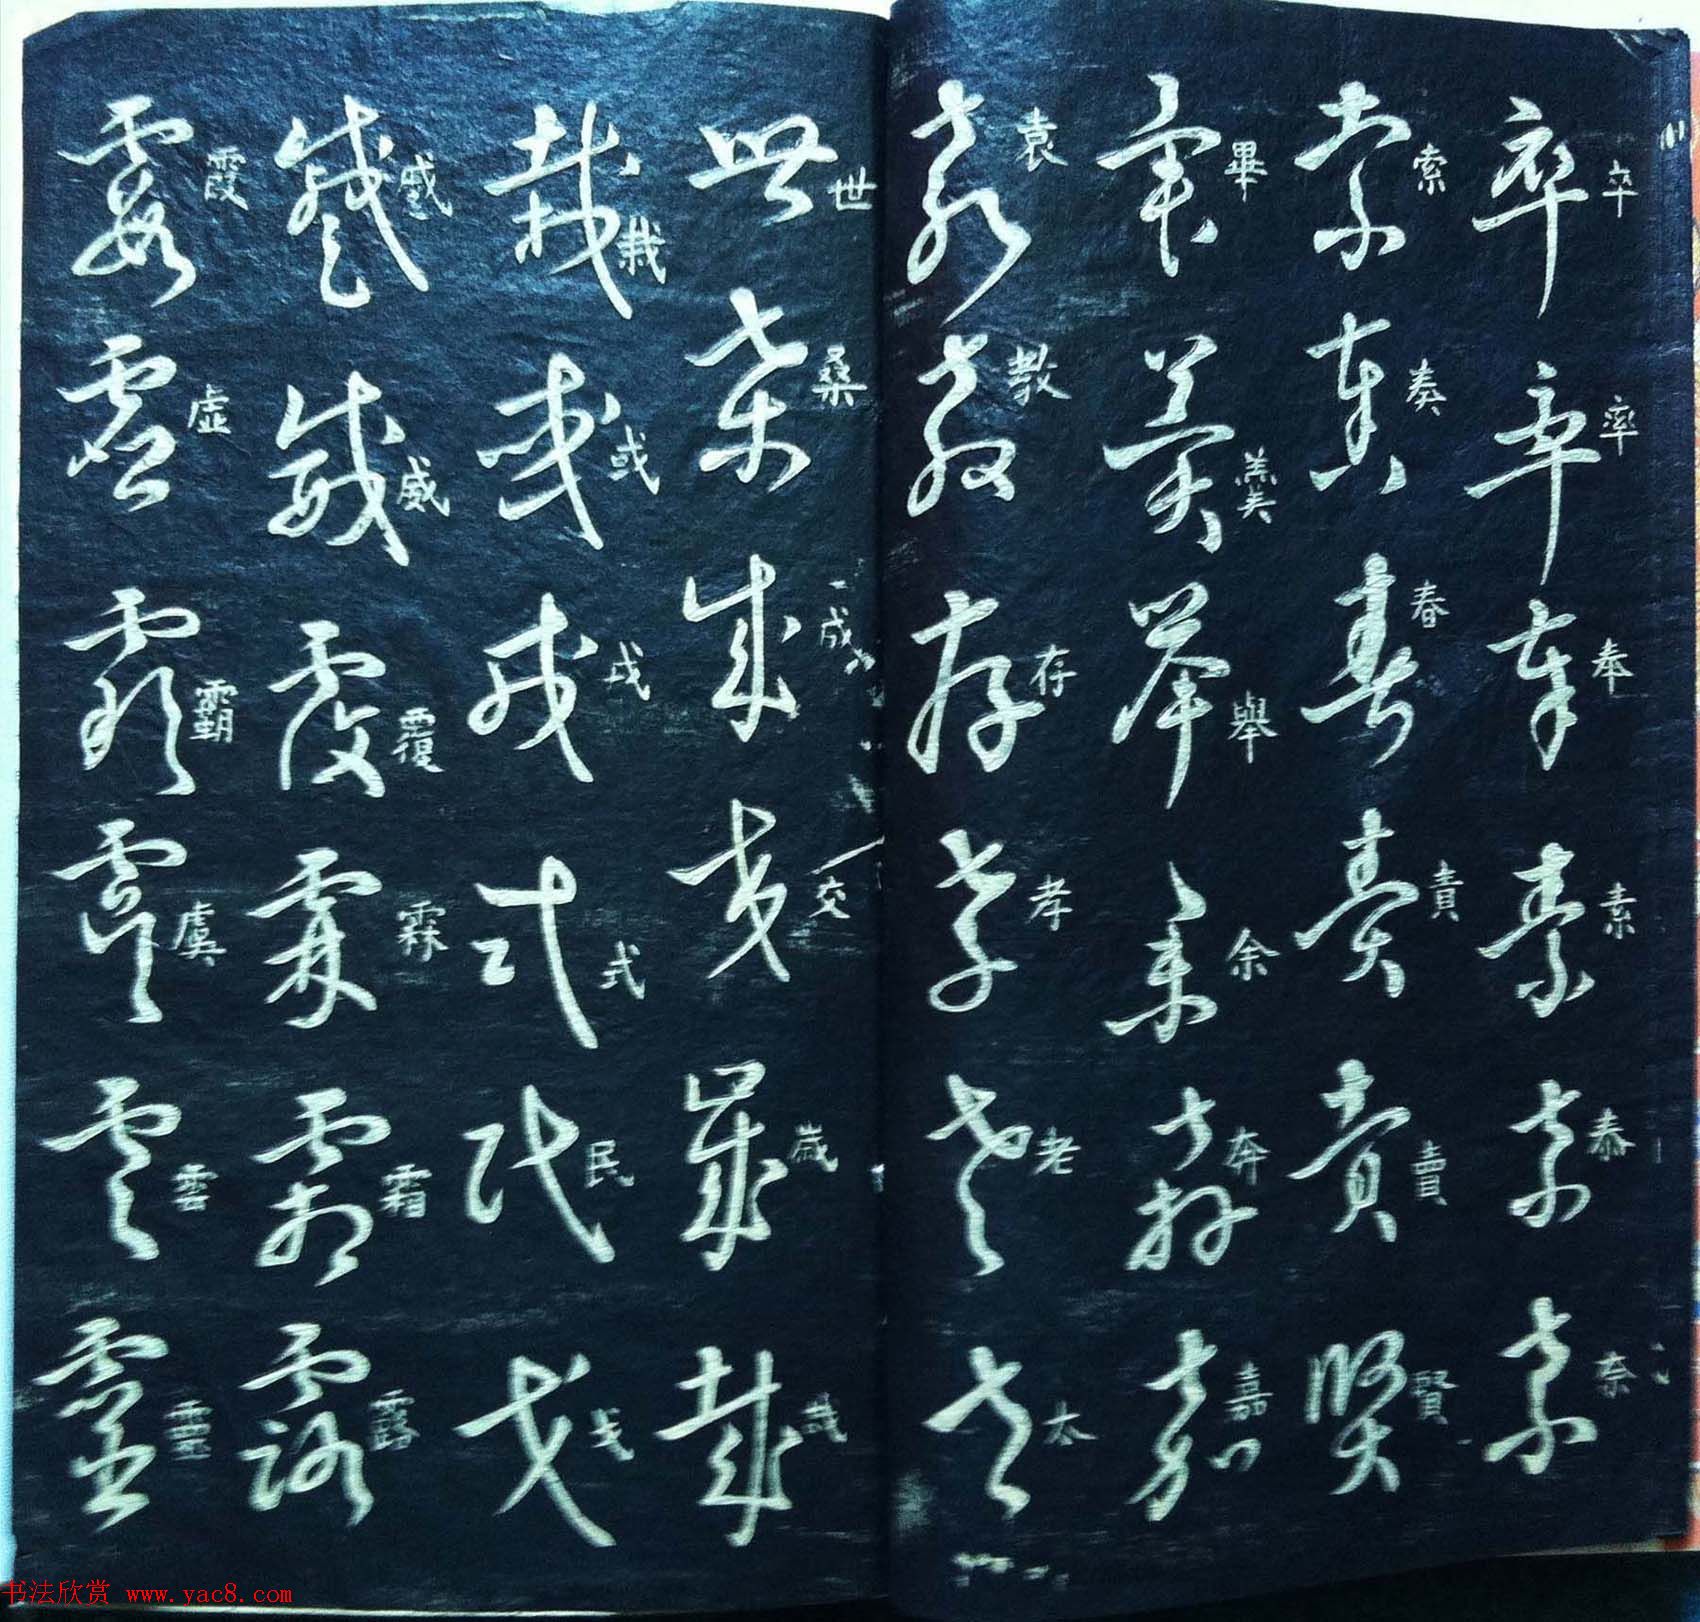 卒率奉素泰奈
索奏春責賣賢
畢羹舉余奔嘉
袁教存孝老太
世桑成交歲哉
栽或戍式民戈
威覆霖霜露
霞虛霸虞雲靈
书法欣赏 www.yac8.com